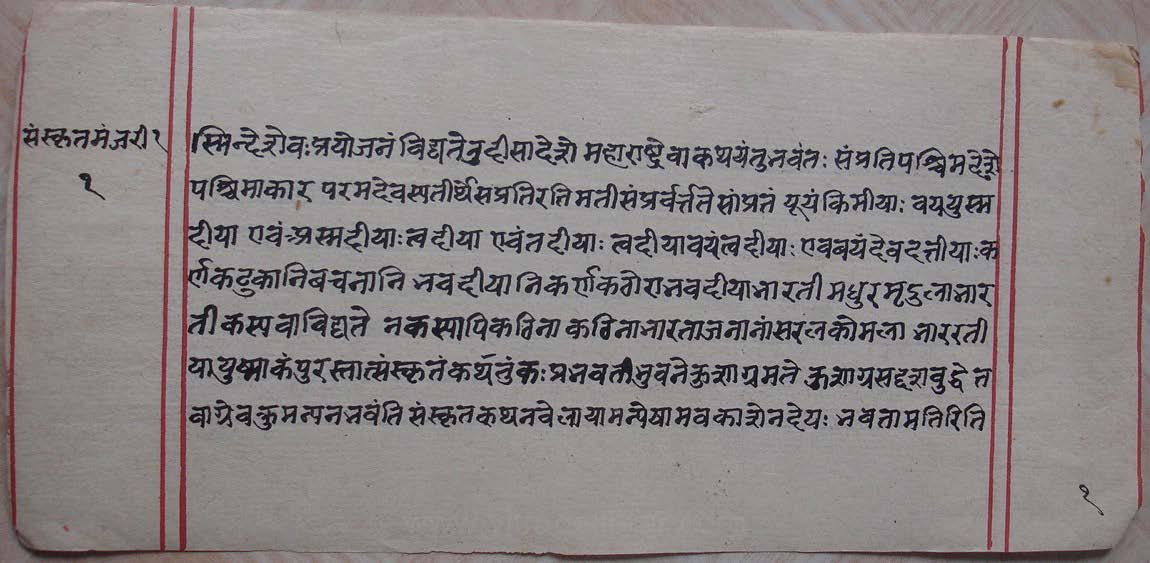 संस्कृतमंजरी१
१
स्मिन्देशेवःप्रयोजनं विद्यते नु दीसादेशे महाराष्ट्रे वा कथयंतुभवंतः संप्रतिपश्चिमदेशे
पश्चिमाकार परमदेवस्पतीर्थेसप्रतिरतिमतीसंप्रवर्त्तते सांप्रतं यूयंकिमीयाः वययुस्म
दीया एवंअस्मदीयाःत्वदीया एवंतदीयाः त्वदीयावयंत्वदीयाः एववयंदेवदत्तीयाःक
र्णकटुकानिबचनानि भवदीयानिकर्णकठोराभवदीयाभारती मधुरमृदुलाभार
तीकस्पवाविद्यते नकस्यापिकठिना कठिनाभारताजनानांसरलकोमला भाररती
यायुष्माकंपुरस्तात्संस्कृतंकर्थतुंकःप्रभवतीभुवनेकुशाग्रमते कुशाग्रसदृशबुद्धे त
वाग्रेवक्रुमत्पनभवंति संस्कृतकथनवेलायामन्येषामवकाशेनदेयः भवतामतिरिति
१